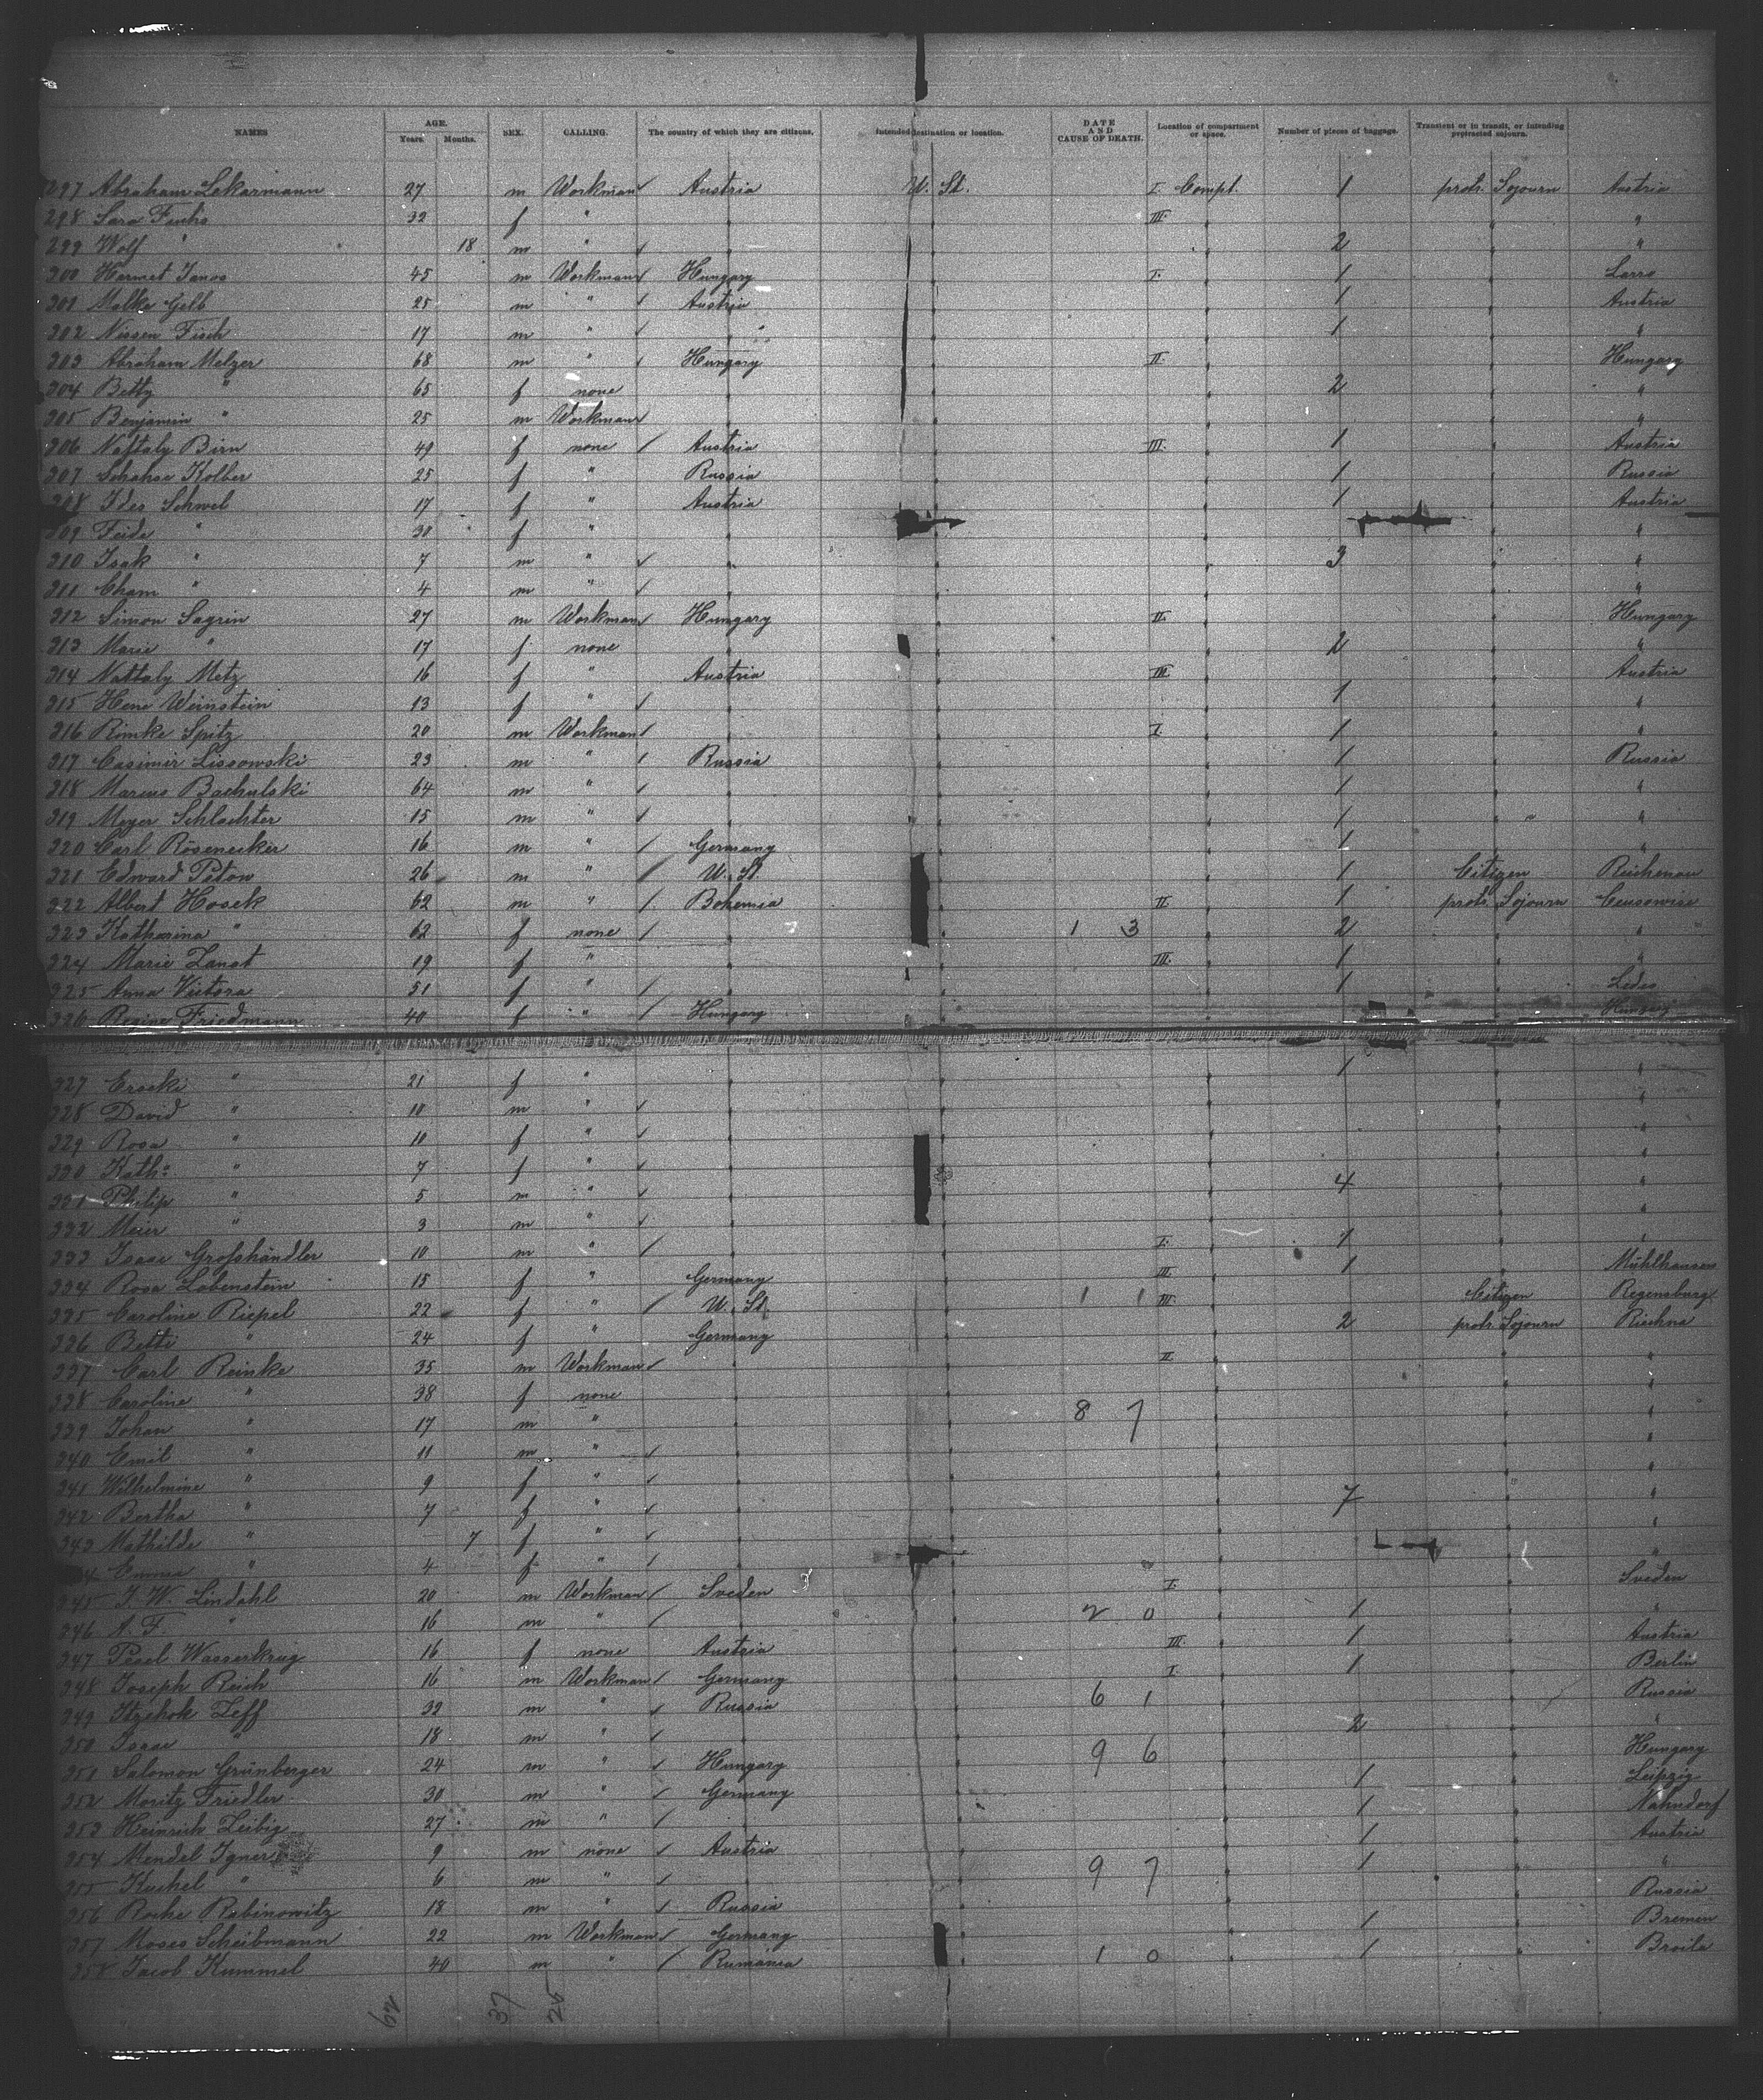 NAMES AGE. Years. Months. SEX. CALLING. The country of which they are citizens. Intended destination or location. DATE AND CAUSE OF DEATH. Location of compartment or space. Number of pieces of baggage. Transient or in transit, or intending protracted sojourn.
297 Abraham Lekarmann 27 m Workman Austria U. St. I. Compt. 1 protr. Sojourn Austria
298 Sara Fuchs 32 f " III. "
299 Wolf " 18 m " 2 "
300 Hermet Janos 45 m Workman Hungary I. 1
301 Malke Gelb 25 m " Austria 1 Austria
302 Nissen Fisch 17 m " " 1 "
303 Abraham Melzer 68 m " Hungary II. Hungary
304 Betty " 65 f none 2 "
305 Benjamin " 25 m Workman "
306 Naftaly Birn 49 f none Austria III. 1 Austria
307 Kolber 25 f " Russia 1 Russia
308 Ides Schwel 17 f " Austria 1 Austria
309 Feide " 30 f " "
310 Isak " 7 m " 3 "
311 Cham " 4 m " "
312 Simon Sagrin 27 m Workman Hungary II. Hungary
313 Marie " 17 f none 2 "
314 Nattaly Metz 16 f " Austria III. Austria
315 Hene Weinstein 13 f " 1 "
316 Rimke Spitz 20 m Workman I. 1 "
317 Casimir Lissowski 23 m " Russia 1 Russia
318 Marcus Bachulski 64 m " 1 "
319 Meyer Schlachter 15 m " 1 " "
320 Carl Rosenecker 16 m " Germany 1 "
321 Edward Poton 26 m " U. St. 1 Citizen Reichenau
322 Albert Hosek 62 m " Bohemia II. 1 protr. Sojourn
323 Katharina " 62 f none 1 3 2 "
324 Marie Zanat 19 f " III. 1 "
325 Anna Victora 51 f " 1 Ledes
326 Regine Friedmann 40 f " Hungary Hungary
327 " 21 f " 1 "
328 David " 10 m " "
329 Rosa " 10 f " "
330 Kath: " 7 f " "
331 Philip " 5 m " 4 "
332 Meier " 3 m " "
333 Isaac Grofshändler 10 m " I. 1 "
334 Rosa Lobenstein 15 f " Germany III. 1 Mühlhausen
335 Caroline Riepel 22 f " U. St. 1 1 III. Citizen Regensburg
336 Betti " 24 f " Germany 2 protr. Sojourn Richna
337 Carl Reinke 35 m Workman II. "
338 Caroline " 38 f none "
339 Johan " 17 m " 8 7 "
340 Emil " 11 m " "
341 Wilhelmine " 9 f " " "
342 Bertha " 7 f " 7 "
343 Mathilde " 7 f " "
344 Emma " 4 f " "
345 J. W. Lindahl 20 m Workman Sveden I. Sveden
346 A. F. " 16 m " 2 0 1 "
347 Pesel Wasserkrug 16 f none Austria III. 1 Austria
348 Joseph Reich 16 m Workman Germany I. 1 Berlin
349 Itzchok Zeff 32 m " Russia 6 1 Russia
350 Isaac " 18 m " 2 "
351 Salomon Grünberger 24 m " Hungary 9 6 Hungary
352 Moritz Friedler 30 m " Germany 1 Leipzig
353 Heinrich Leibig 27 m " 1 Nahndorf
354 Mendel Igner 9 m none Austria 1 Austria
355 Kuchel " 6 m " 9 7 1 "
356 Roche Rabinowitz 18 m " Russia Russia
357 Moses Scheibmann 22 m Workman Germany 1 Bremen
358 Jacob Kummel 40 m " Rumänia 1 0 1 Broila
62 37 25